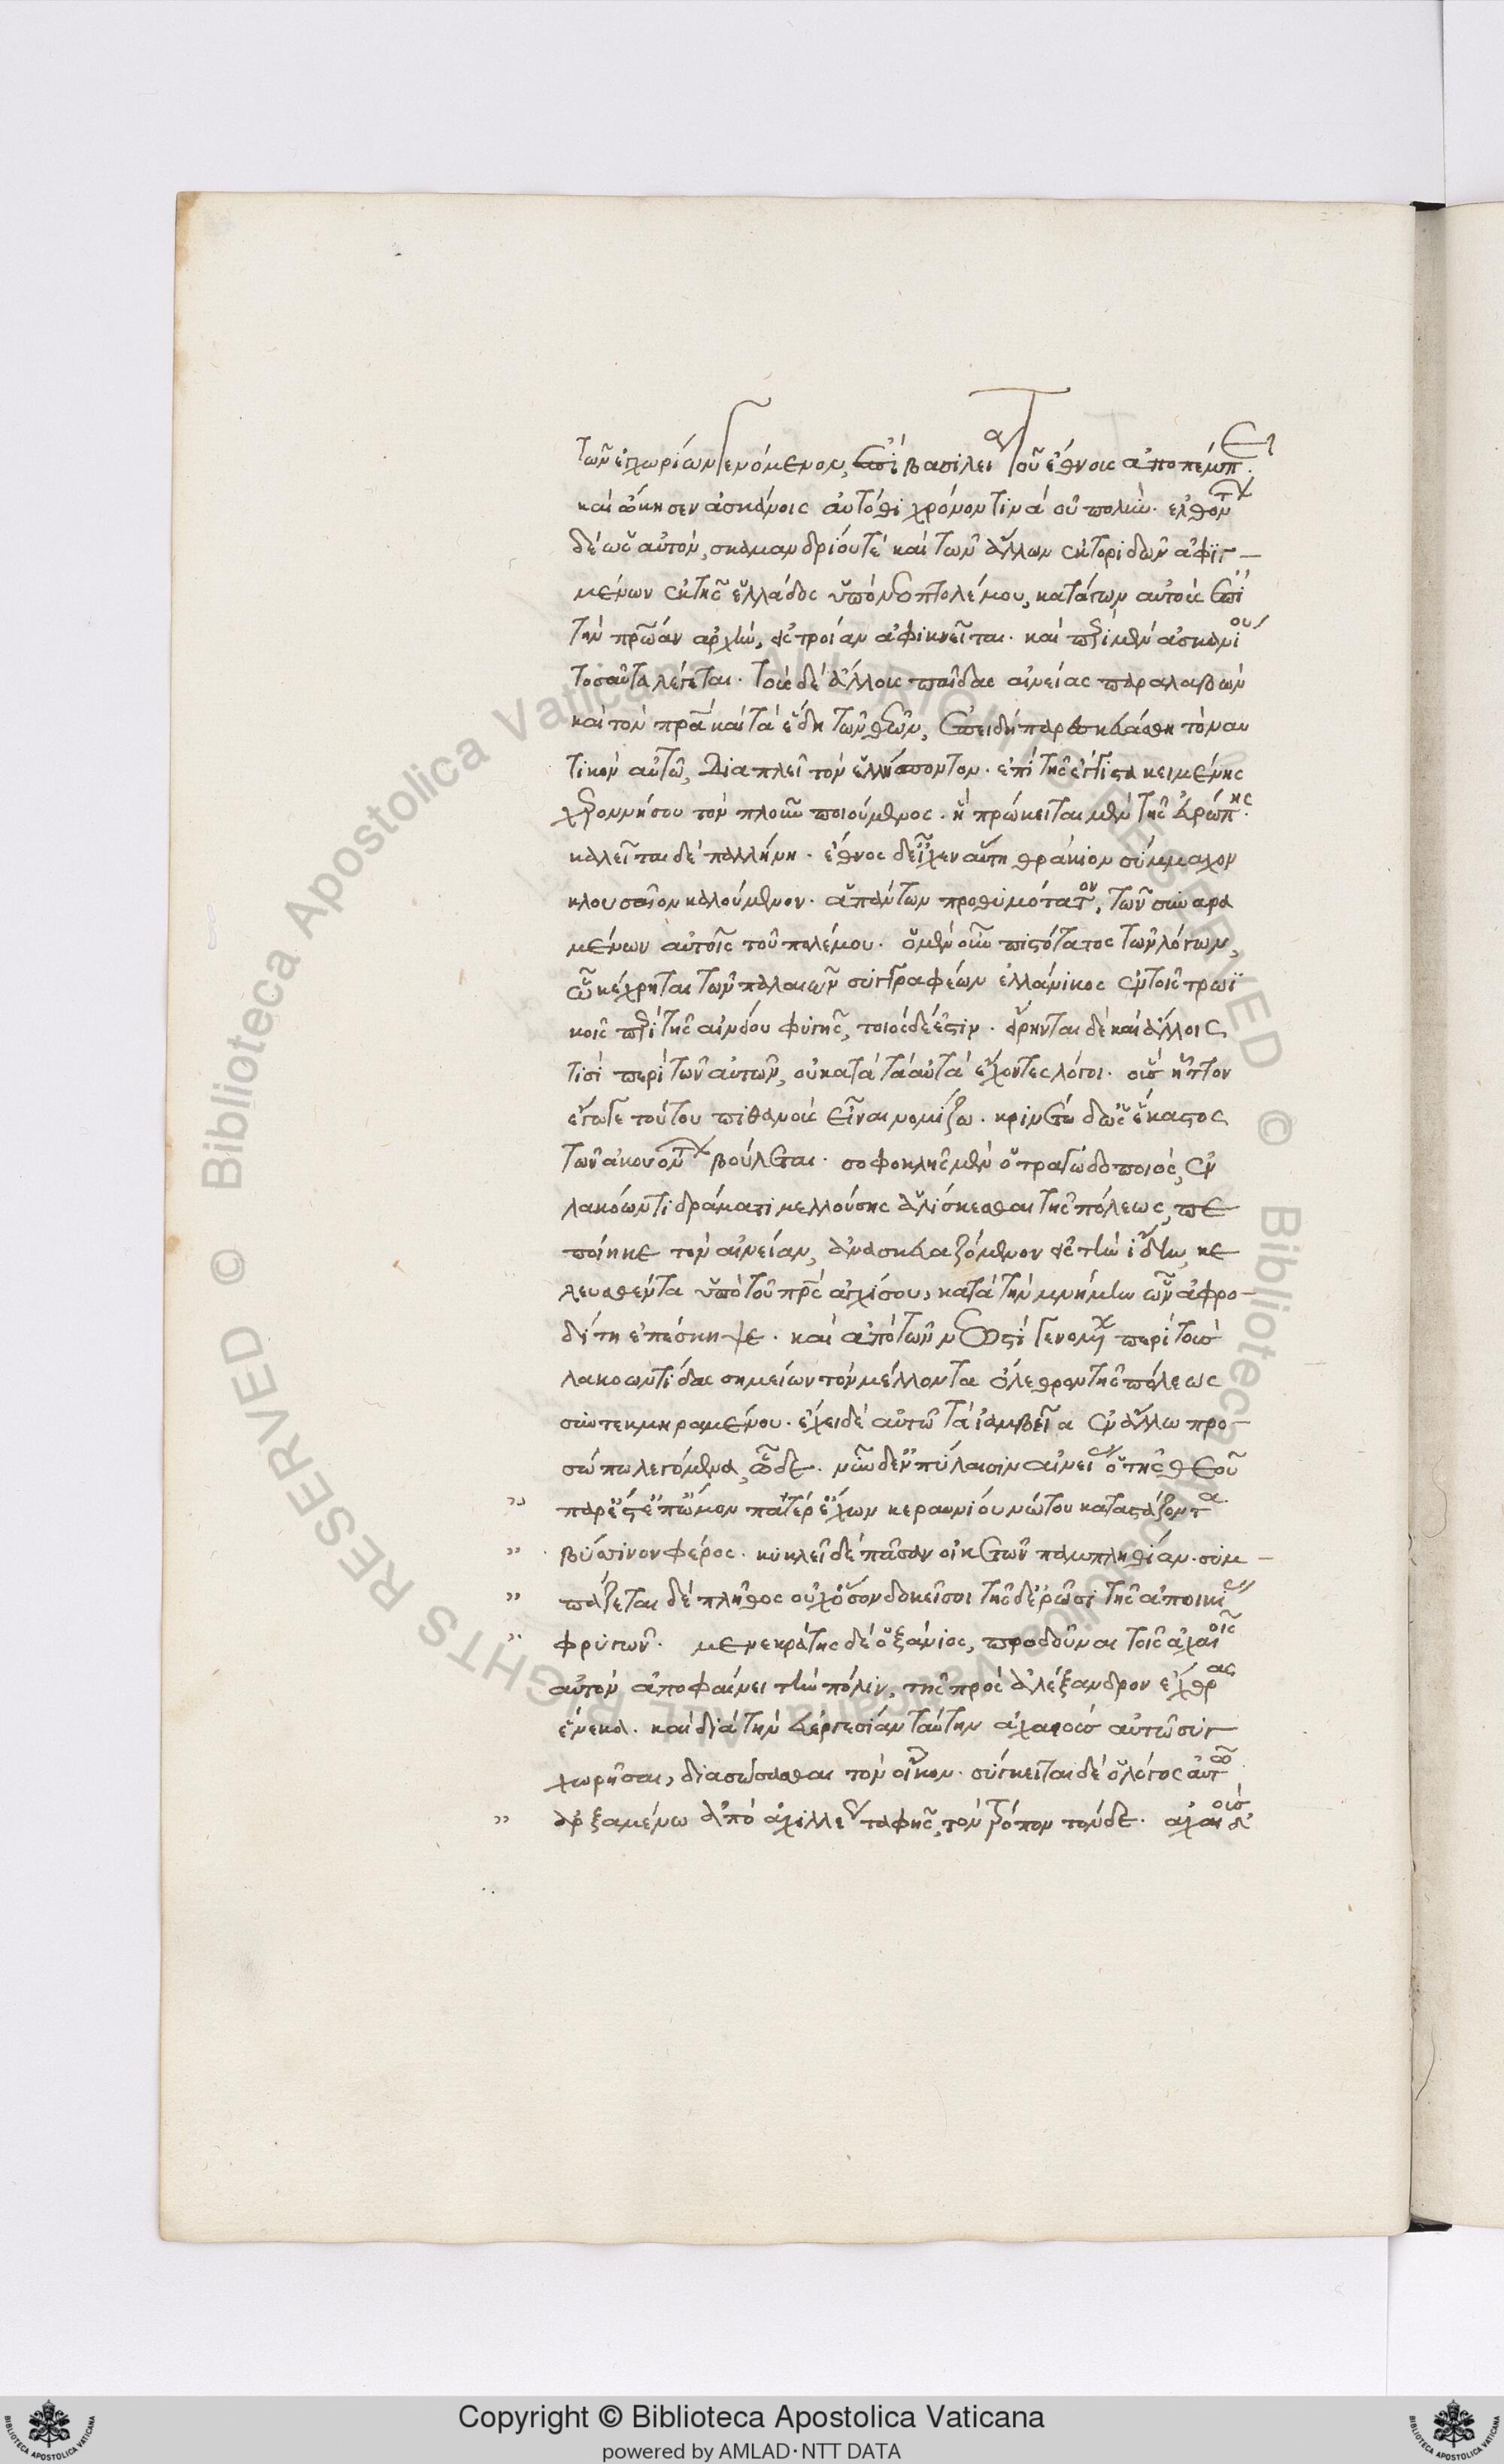 τῶν ἐγχωρίων γενόμενον, ἐπὶ βασιλείᾳ τοῦ ἔθνους ἀποπέμπει.
καὶ ᾤκησεν ἀσκάνιος αὐτόθι χρόνον τινὰ οὐ πολὺν. ἐλθόντων
δὲ ὡς αὐτὸν, σκαμανδρίου τὲ καὶ τῶν ἄλλων ἑκτοριδῶν ἀφιγ-
μένων ἐκ τῆς ἑλλάδος ὑπὸ νεοπτολέμου, κατάγων αὐτοὺς ἐπὶ
τὴν πρώαν ἀρχὴν, εἰς τροίαν ἀφικνεῖται. καὶ περὶ μὲν ἀσκανίου
τοσαῦτα λέγεται. τοὺς δὲ ἄλλους παῖδας αἰνείας παραλαβὼν
καὶ τὸν πρα καὶ τὰ ἕδη τῶν θεῶν, ἐπειδὴ παρεσκευάσθη τὸ ναυ
τικὸν αὐτῶ, διαπλεῖ τὸν ἑλλήσποντον. ἐπὶ τῆς ἔγγιστα κειμένης
χερρονήσου τὸν πλοῦν ποιούμενος. ἣ πρόκειται μὲν τῆς εὐρώπης.
καλεῖται δὲ παλλήνη. ἔθνος δὲ εἶχεν αὕτη θράκιον σύμμαχον
κλουσαῖον καλούμενον. ἁπάντων προθυμότατον, τῶν συναρα
μένων αὐτοῖς τοῦ πολέμου. ὁ μὲν οὖν πιστότατος τῶν λόγων,
ᾧ κέχρηται τῶν παλαιῶν συγγραφέων ἑλλάνικος ἐν τοῖς τρωϊ
κοῖς περὶ τῆς αἰνείου φυγῆς, τοιόςδέ ἐστιν. εἴρηνται δὲ καὶ ἄλλοις
τισὶ περὶ τῶν αὐτῶν, οὐ κατὰ τὰ αὐτὰ ἔχοντες λόγοι. οὓς ἧττον
ἔγωγε τούτου πιθανοὺς εἶναι νομίζω. κρινέτω δ ὡς ἕκαστος
τῶν ἀκουόντων βούλεται. σοφοκλῆς μὲν ὁ τραγωδοποιὸς, ἐν
λακόωντι δράματι μελλούσης ἁλίσκεσθαι τῆς πόλεως, πε
ποίηκε τὸν αἰνείαν, ἀνασκευαζόμενον εἰς τὴν ἴδην, κε
λευσθέντα ὑπὸ τοῦ πρς ἀγχίσου, κατὰ τὴν μνήμην ὧν ἀφρο-
δίτη ἐπέσκηψε. καὶ ἀπὸ τῶν νεωστὶ γενομένων περὶ τοὺς
λακοωντίδας σημείων τὸν μέλλοντα ὄλεθρον τῆς πόλεως
συντεκμηραμένου. ἔχει δὲ αὐτῶ τὰ ἰαμβεῖα ἐν ἄλλω προ-
σώπω λεγόμενα, ὧδε. νῦν δ ἐν πύλαισιν αἰνείας ὁ τῆς θεοῦ
πάρεστ ἐπ ὤμων πατέρ ἔχων κεραυνίου νώτου καταστάζοντα
βύσσινον φέρος. κυκλεῖ δὲ πᾶσαν οἰκετῶν παμπληθίαν. συμ-
πάζεται δὲ πλῆθος οὐχ ὅσον δοκεῖς οἳ τῆςδ ἐρῶσι τῆς ἀποικίας
φρυγῶν. μενεκράτης δὲ ὁ ξάνιος, προδοῦναι τοῖς ἀχαιοῖς
αὐτὸν ἀποφαίνει τὴν πόλιν, τῆς πρὸς ἀλέξανδρον ἔχθρας
ἕνεκα. καὶ διὰ τὴν εὐεργεσίαν ταύτην ἀχαιοὺς αὐτῶ συγ-
χωρῆσαι, διασώσασθαι τὸν οἶκον. σύγκειται δὲ ὁ λόγος αὐτῶ
ἀρξαμένω ἀπὸ ἀχιλλέως ταφῆς, τὸν τρόπον τόνδε. ἀχαιοὺς δ